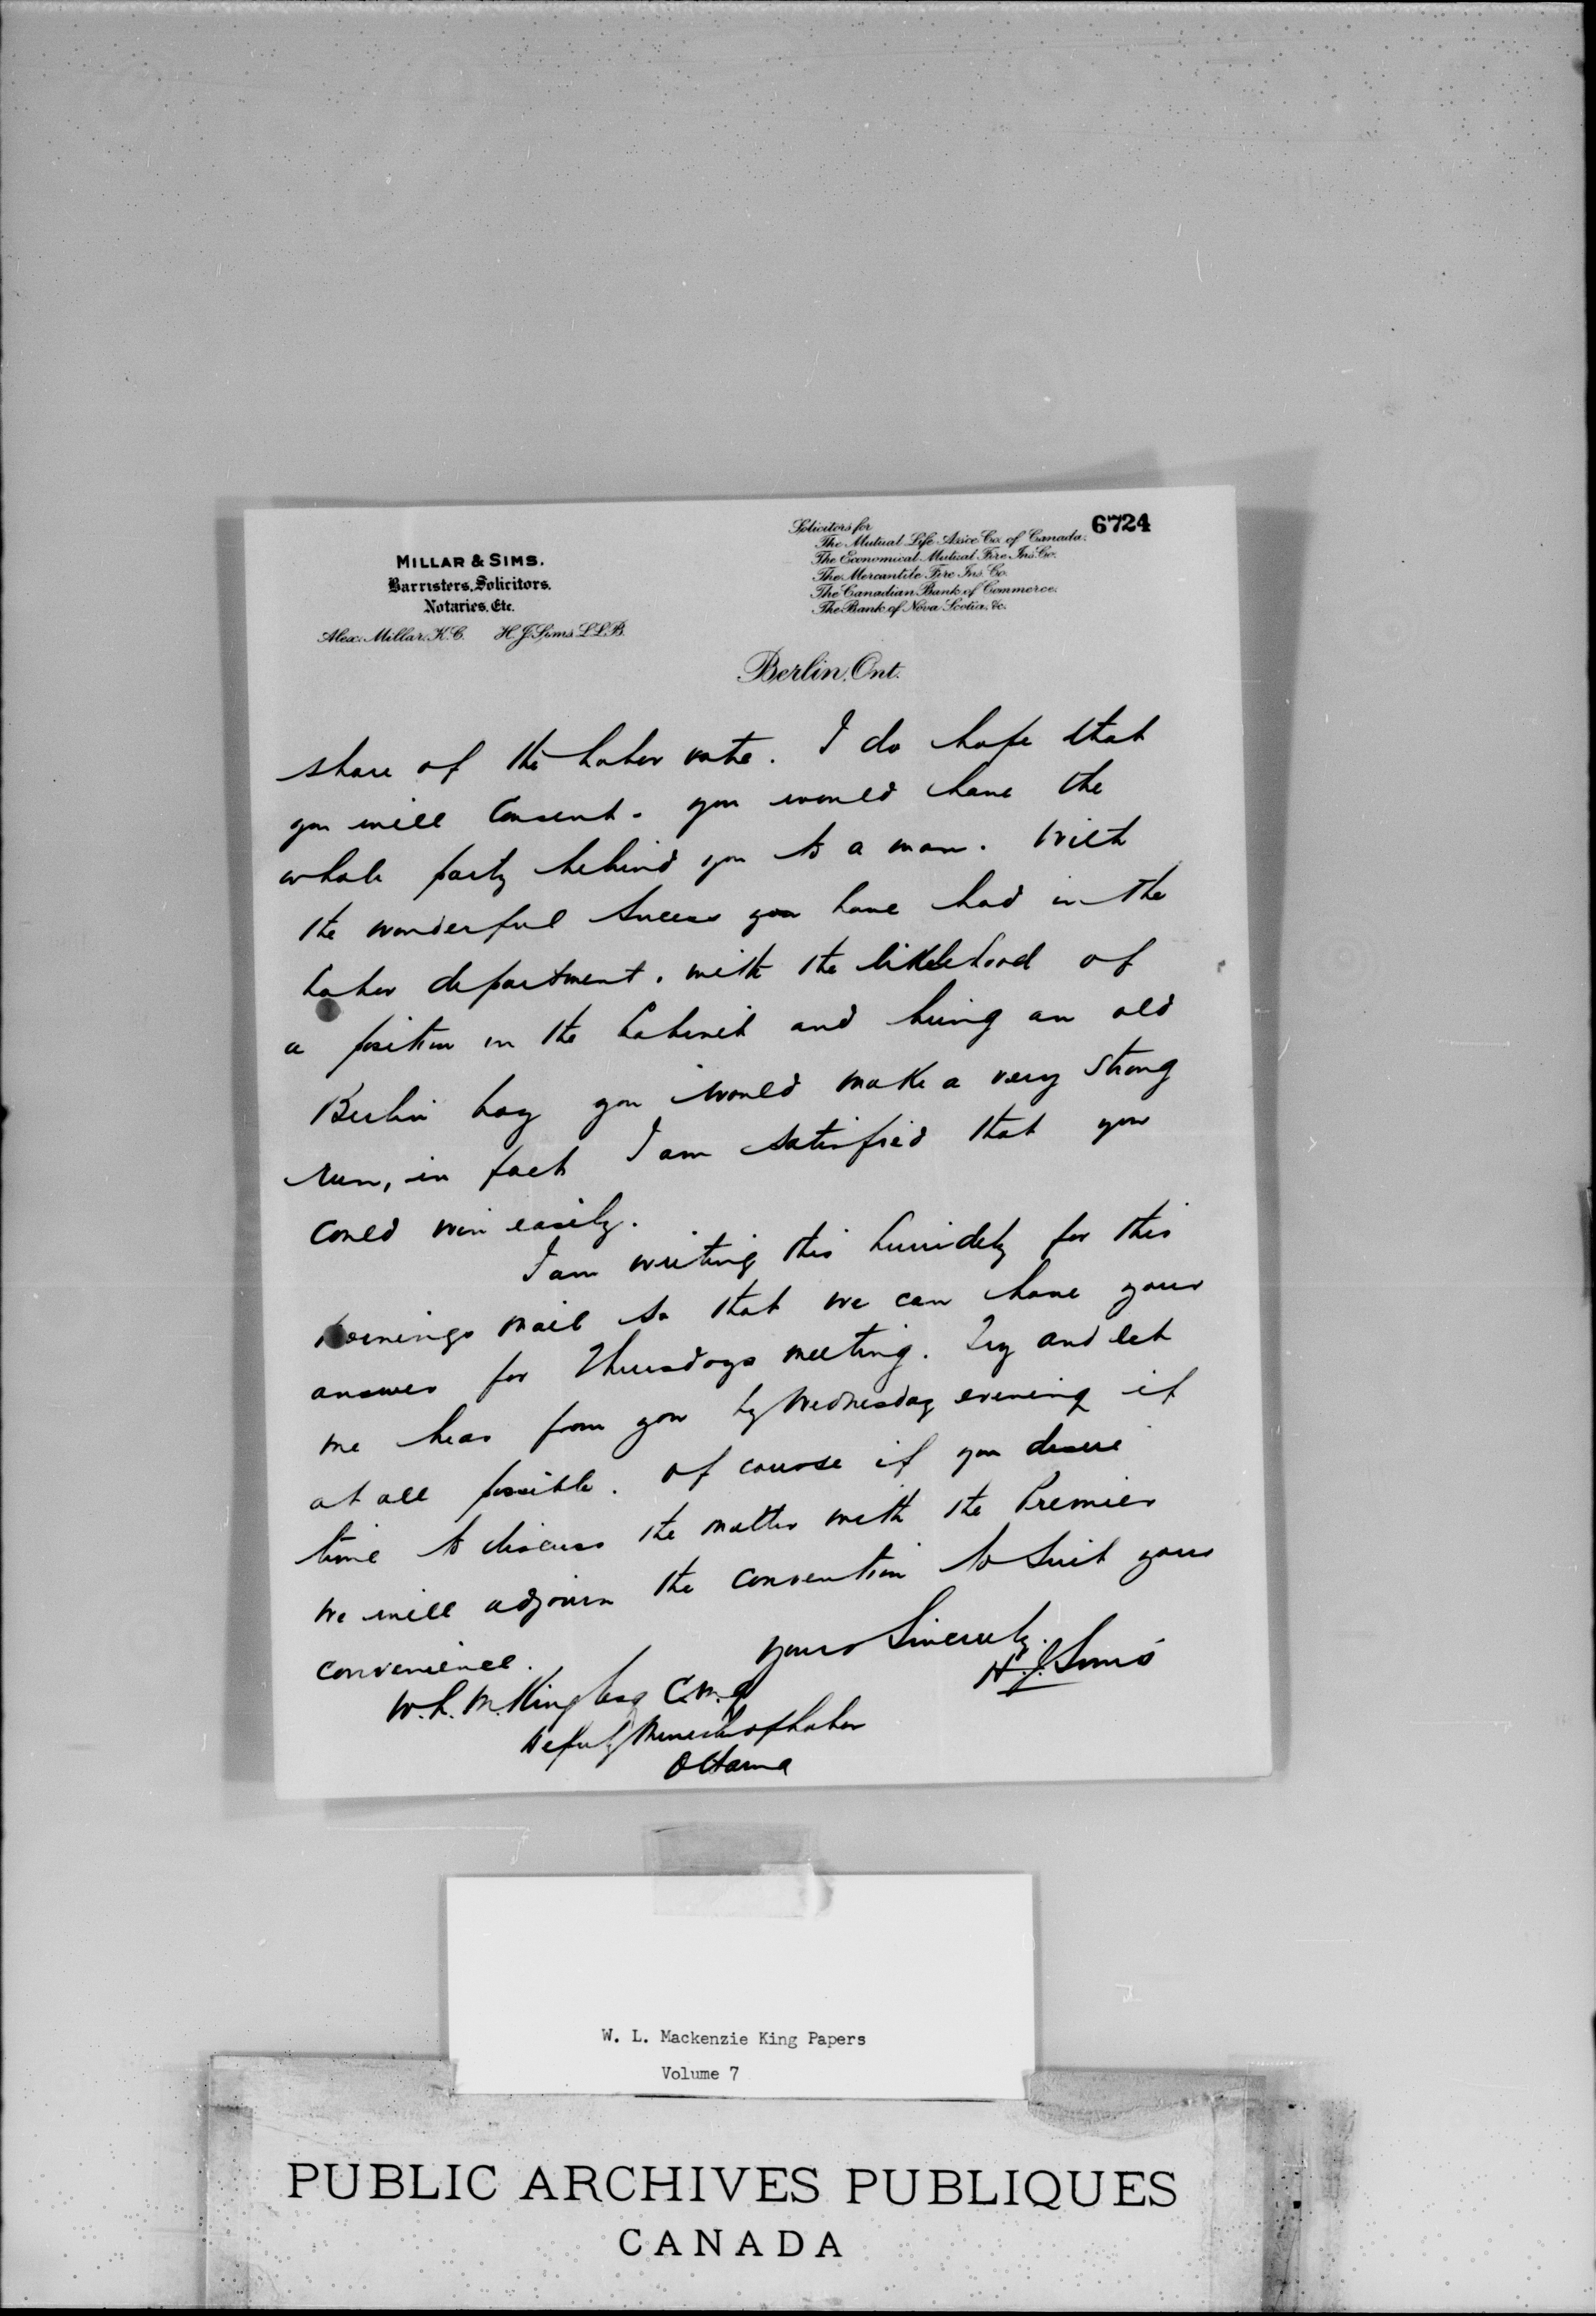 6724
MILLAR & SIMS.
Barristers, Solicitors,
Notaries, Etc.
Alex. Millar, K.C. H. J. Sims, LL.B.
Solicitors for
The Mutual Life Assce Co. of Canada.
The Economical Mutual Fire Ins. Co.
The Mercantile Fire Ins. Co.
The Canadian Bank of Commerce.
The Bank of Nova Scotia, &c.
Berlin, Ont.
share of the labor vote. I do hope that
you will consent. You would have the
whole party behind you to a man. With
the wonderful success you have had in the
labor department, with the likelihood of
a position in the Cabinet and being an old
Berlin boy you would make a very strong
run, in fact I am satisfied that you
could win easily.
I am writing this hurriedly for this
mornings mail so that we can have your
answer for Thursdays meeting. Try and let
me hear from you by Wednesday evening if
at all possible. Of course if you desire
time to discuss the matter with the Premier
we will adjourn the convention to suit your
convenience.
Yours Sincerely.
H. J. Sims
W. L. M. King Esq C.M.G
Deputy Minister of Labor
Ottawa
W. L. Mackenzie King Papers
Volume 7
PUBLIC ARCHIVES PUBLIQUES
CANADA